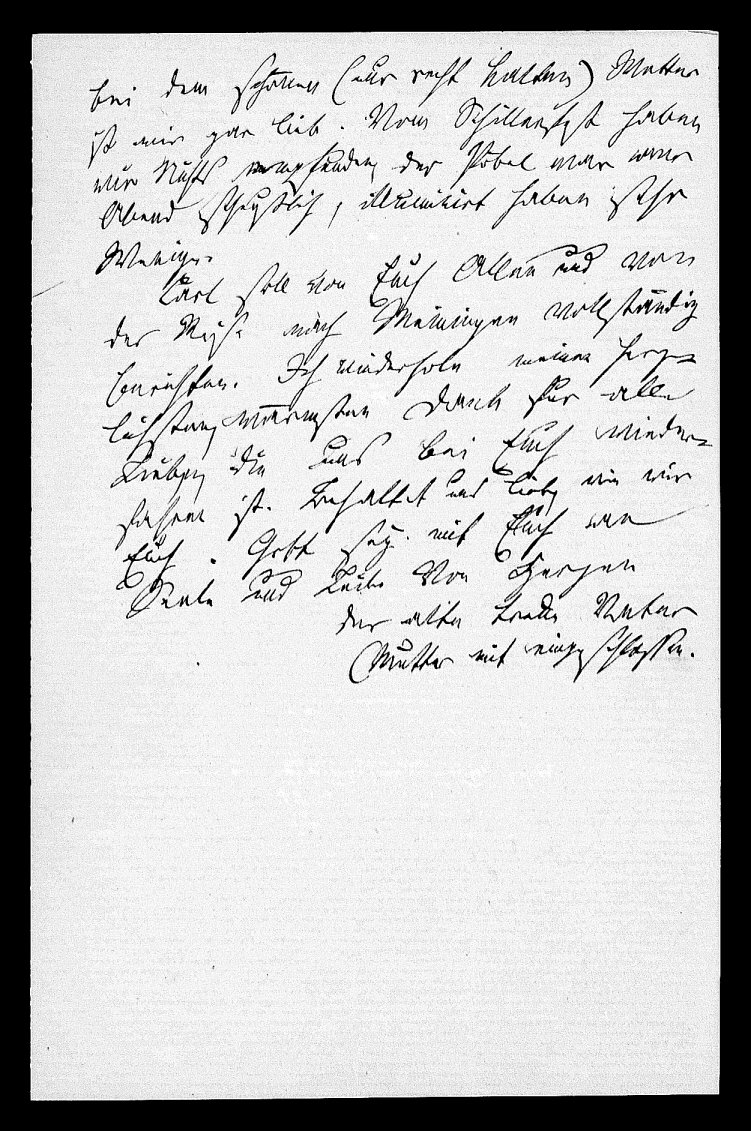 bei dem schönen (nur recht kalten) Wetter
ist mir gar lieb. Vom Schillerfest haben
wir Nichts empfunden, der Pöbel war am
Abend scheußlich, illuminirt haben sehr
Wenige.
Carl soll von Euch Allen und von
der Reise nach Meiningen vollständig
berichten. Ich wiederhole meinen herz-
lichsten, wärmsten Dank für alle
Liebe, die uns bei Euch wieder-
fahren ist. Behaltet uns lieb, wie wir
Euch. Gott sey mit Euch an
Seele und Leib. Von Herzen
der alte treue Vater
(Mutter mit eingeschlossen.